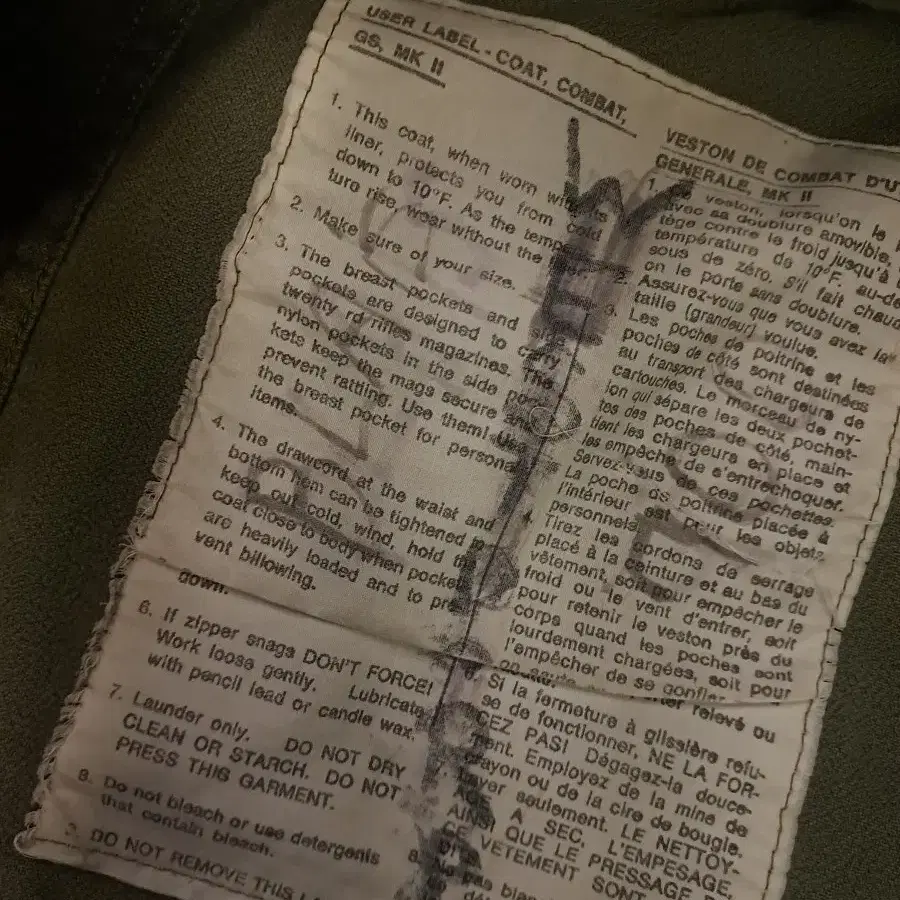 USER LABEL - COAT, COMBAT,
GS, MK II
1. This coat, when worn with its
liner, protects you from cold
down to 10°F. As the tempera-
ture rise, wear without the
2. Make sure of your size.
3. The breast pockets and
pockets are designed to carry
twenty rd rifles magazines. The
nylon pockets in the side poc-
kets keep the mags secure and
prevent rattling. Use them! Use
the breast pocket for personal
items.
4. The drawcord at the waist and
bottom hem can be tightened to
keep out cold, wind, hold the
coat close to body when pockets
are heavily loaded and to pre-
vent billowing.
down.
6. If zipper snags DON'T FORCE!
Work loose gently. Lubricate
with pencil lead or candle wax.
7. Launder only. DO NOT DRY
CLEAN OR STARCH. DO NOT
PRESS THIS GARMENT.
8. Do not bleach or use detergents
that contain bleach.
DO NOT REMOVE THIS
VESTON DE COMBAT D'U
GENERALE, MK II
1. veston, lorsqu'on le
avec sa doublure amovible,
tège contre le froid jusqu'à
température de 10°F. au-de
sous de zéro. S'il fait chaud
on le porte sans doublure.
2. Assurez-vous que vous avez la
taille (grandeur) voulue.
3. Les poches de poitrine et les
poches de côté sont destinées
au transport des chargeurs de
cartouches. Le morceau de ny-
lon qui sépare les deux pochet-
tes des poches de côté, main-
tient les chargeurs en place et
les empêche de s'entrechoquer.
Servez-vous de ces pochettes.
La poche de poitrine placée à
l'intérieur est pour les objets
personnels.
4. Tirez les cordons de serrage
placé à la ceinture et au bas du
vêtement, soit pour empêcher le
froid ou le vent d'entrer, soit
pour retenir le veston près du
corps quand les poches sont
lourdement chargées, soit pour
l'empêcher de se gonfler.
relevé ou
Si la fermeture à glissière refu-
se de fonctionner, NE LA FOR-
CEZ PAS! Dégagez-la douce-
ment. Employez de la mine de
crayon ou de la cire de bougie.
Laver seulement. LE NETTOY-
AGE A SEC, L'EMPESAGE,
AINSI QUE LE PRESSAGE
CE VETEMENT SONT
8.